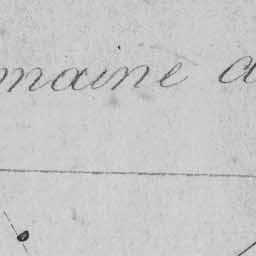 maine d